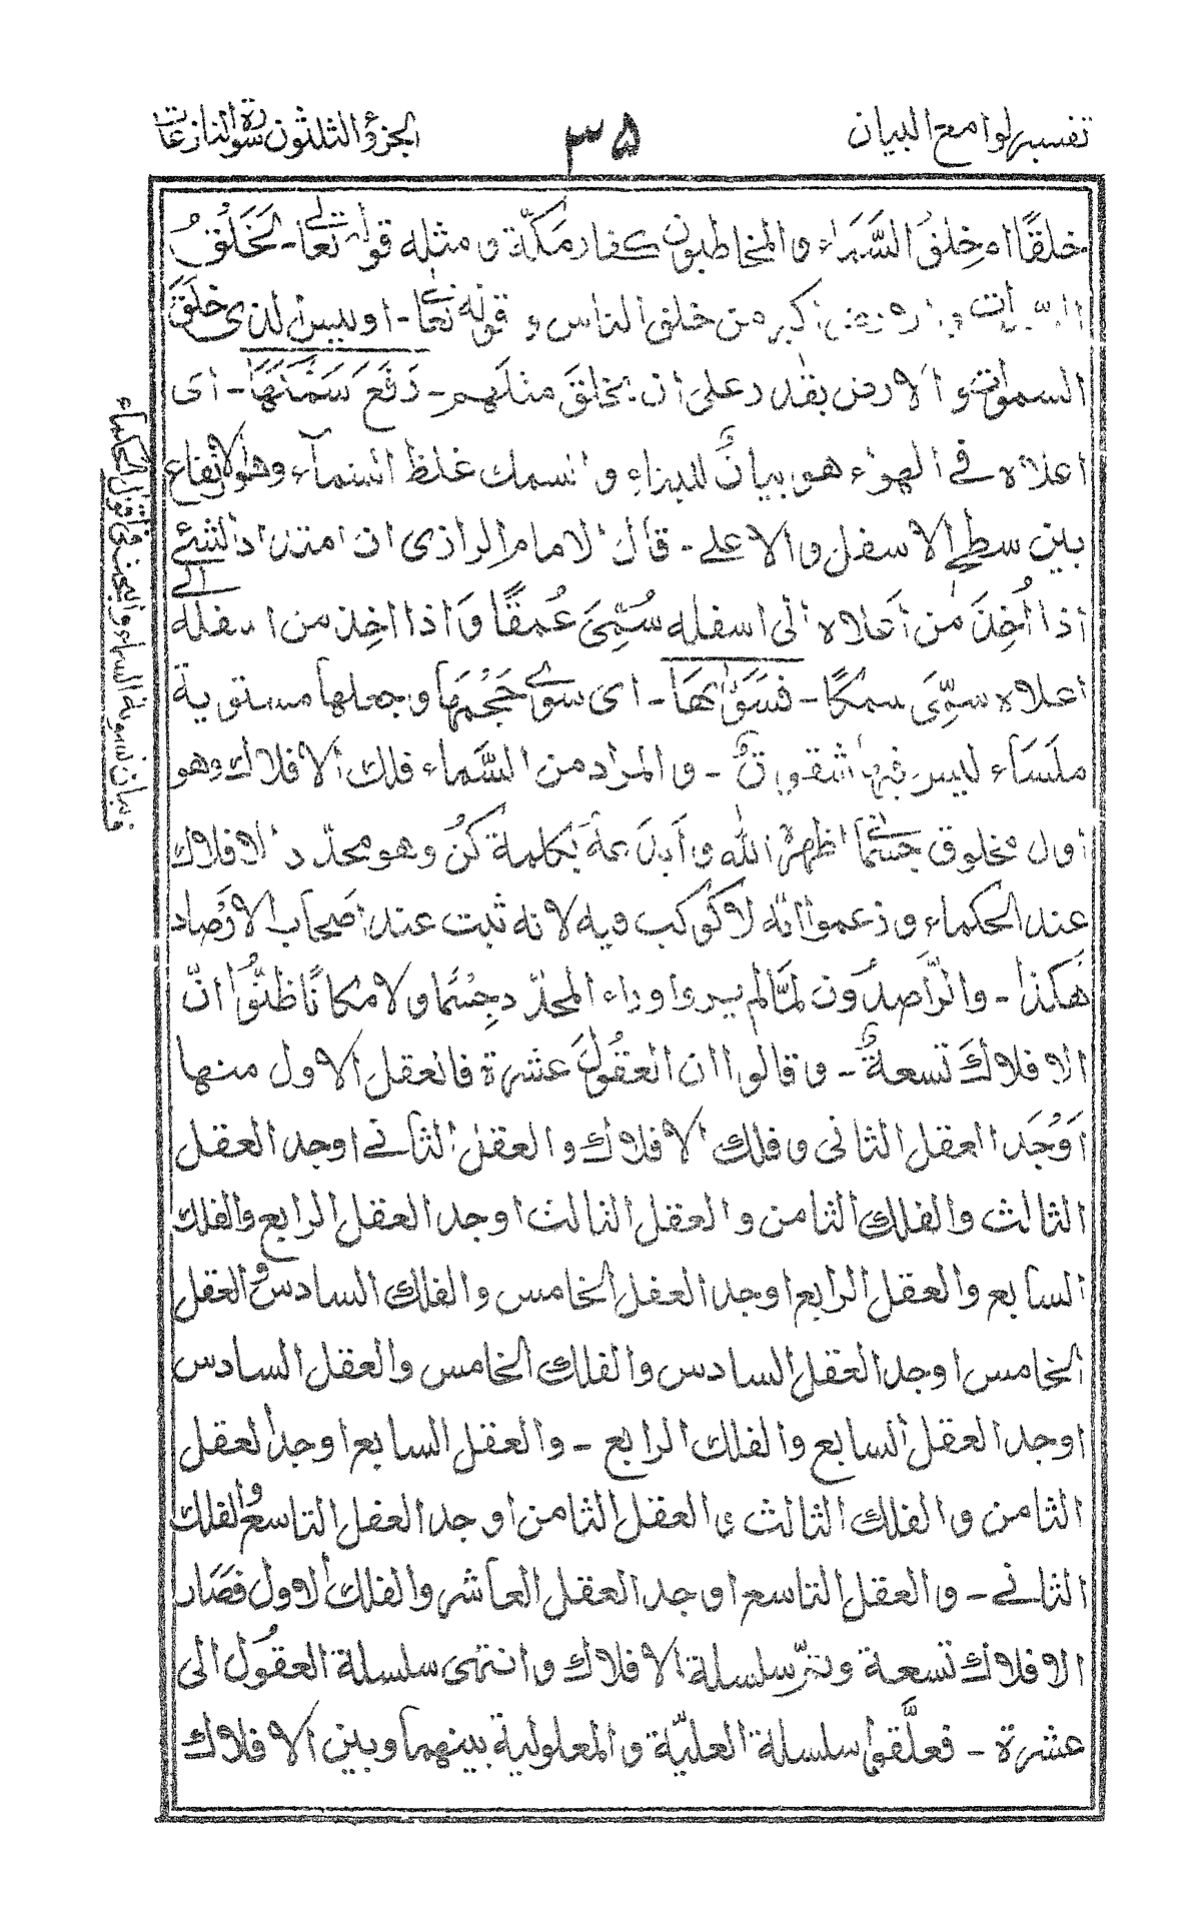 تفسير لوامع البيان
٣٥
الجزؤ الثلثون سورة النازعات
خلقًا ام خلقُ السَّمَاء والمخاطبون كفار مكّة و مثله قوله تعالے - لَخَلْقُ
السّموات والارض اكبر من خلق الناس و قوله تعالے - اوليس الذى خلقَ
السموات و الارض بقٰدر على ان يخلقَ مثلهم - رَفَعَ سَمْكَهَا - اى
اعلاه فى الهواء هو بيانٌ للبناء و السمك غلظ السماء وهو الارتفاع
بين سطحے الاسفل والاعلے - قال الامام الرازى ان امتداد الشئے
اذا اُخِذَ من اَعلاه الى اسفله سُمِّىَ عُمقًا وَاذا اخِذ من اسفله الے
اعلاه سمِّىَ سمكًا - فسَوّٰىهَا - اى سوے حَجْمَهَا وجعلها مستوية
ملَسَاء ليس فيها شقوق - والمراد من السَّماء فلك الافلاك وهو
اول مخلوق جسمًا اظهره الله و اَبدَعَهٗ بكلمة كُنْ وهو محدّد الافلاك
عند الحكماء و زعموا انّه لا كوكب فيه لانه ثبت عند اصحاب الارصاد
هكذا - والرَّاصِدُون لمَّا لم يروا وراء المحدّد جِسْمًا ولا مكانًا ظنُّوا انّ
الافلاكَ تسعةٌ - و قالوا ان العقُولَ عشرة فالعقل الاول منها
اَوْجَد العقل الثانى و فلك الافلاك و العقل الثانے اوجد العقل
الثالث والفلك الثامن و العقل الثالث اوجد العقل الرابع والفلك
السابع والعقل الرابع اوجد العقل الخامس والفلك السادس والعقل
الخامس اوجد العقل السادس والفلك الخامس والعقل السادس
اوجد العقل السابع والفلك الرابع - والعقل السابع اوجد العقل
الثامن والفلك الثالث و العقل الثامن اوجد العقل التاسع والفلك
الثانے - و العقل التاسع اوجد العقل العاشر والفلك الاول فصَار
الافلاك تسعة وتمّ سلسلة الافلاك وانتهى سلسلة العقُول الى
عشرة - فعلَّقوا سلسلة العليّة والمعلولية بينهما وبين الافلاك
فى بيان تسوية السماء والبحث فى اقوال الحكماء